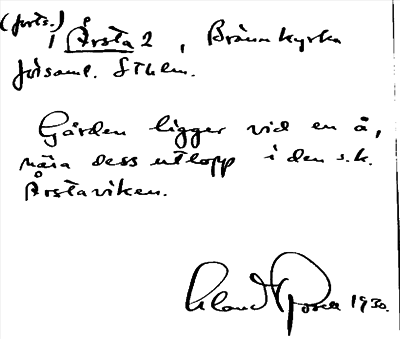 (forts.)
i Årsta 2, Brännkyrka
församl. Sthlm.
Gården ligger vid en å,
nära dess utlopp i den s.k.
Årstaviken.
1930.